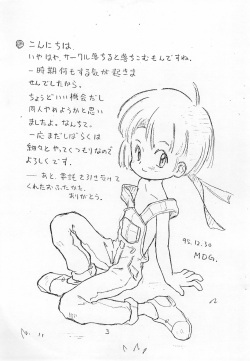 こんにちは、
いやはや、サークル落ちると落ちこむもんですね。
一時期何もする気が起きま
せんでしたから。
ちょうどいい機会だし
同人やめようかと思い
ましたよ。なんちて。
一応まだしばらくは
細々とやってくつもりなので
よろしくです。
── あと、委託を引き受けて
くれたおふたかた、
ありがとう。
92.12.30
MDG.
3